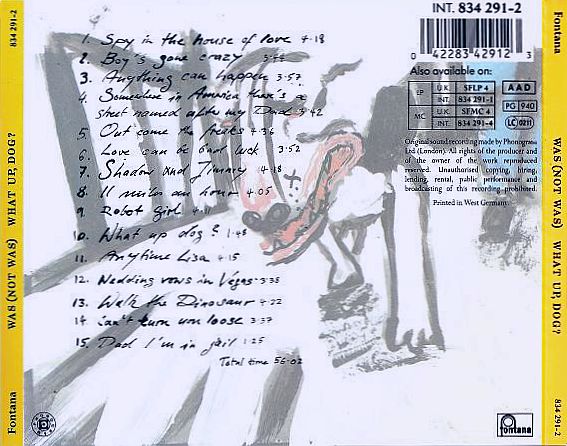 834 291-2
WAS (NOT WAS) WHAT UP, DOG?
Fontana
1. Spy in the house of love 4.18
2. Boy's gone crazy 3.44
3. Anything can happen 3.57
4. Somewhere in America there's a
street named after my Dad 3.42
5. Out come the freaks 4.36
6. Love can be bad luck 3.52
7. Shadow and Jimmy 4.18
8. 11 miles an hour 4.05
9. Robot girl
10. What up dog? 1.48
11. Anytime Lisa 4.15
12. Wedding vows in Vegas 3.38
13. Walk the Dinosaur 4.22
14. i can't turn you loose 3.37
15. Dad I'm in jail 1.25
Total time 56.02
INT. 834 291-2
0 42283 42912 3
Also available on:
LP U.K. SFLP 4
INT. 834 291-1
MC U.K. SFMC 4
INT. 834 291-4
AAD
PG 940
LC 0211
Original sound recording made by Phonogram
Ltd (London). All rights of the producer and
of the owner of the work reproduced
reserved. Unauthorised copying, hiring,
lending, rental, public performance and
broadcasting of this recording prohibited.
Printed in West Germany.
fontana
Fontana
WAS (NOT WAS) WHAT UP, DOG?
834 291-2